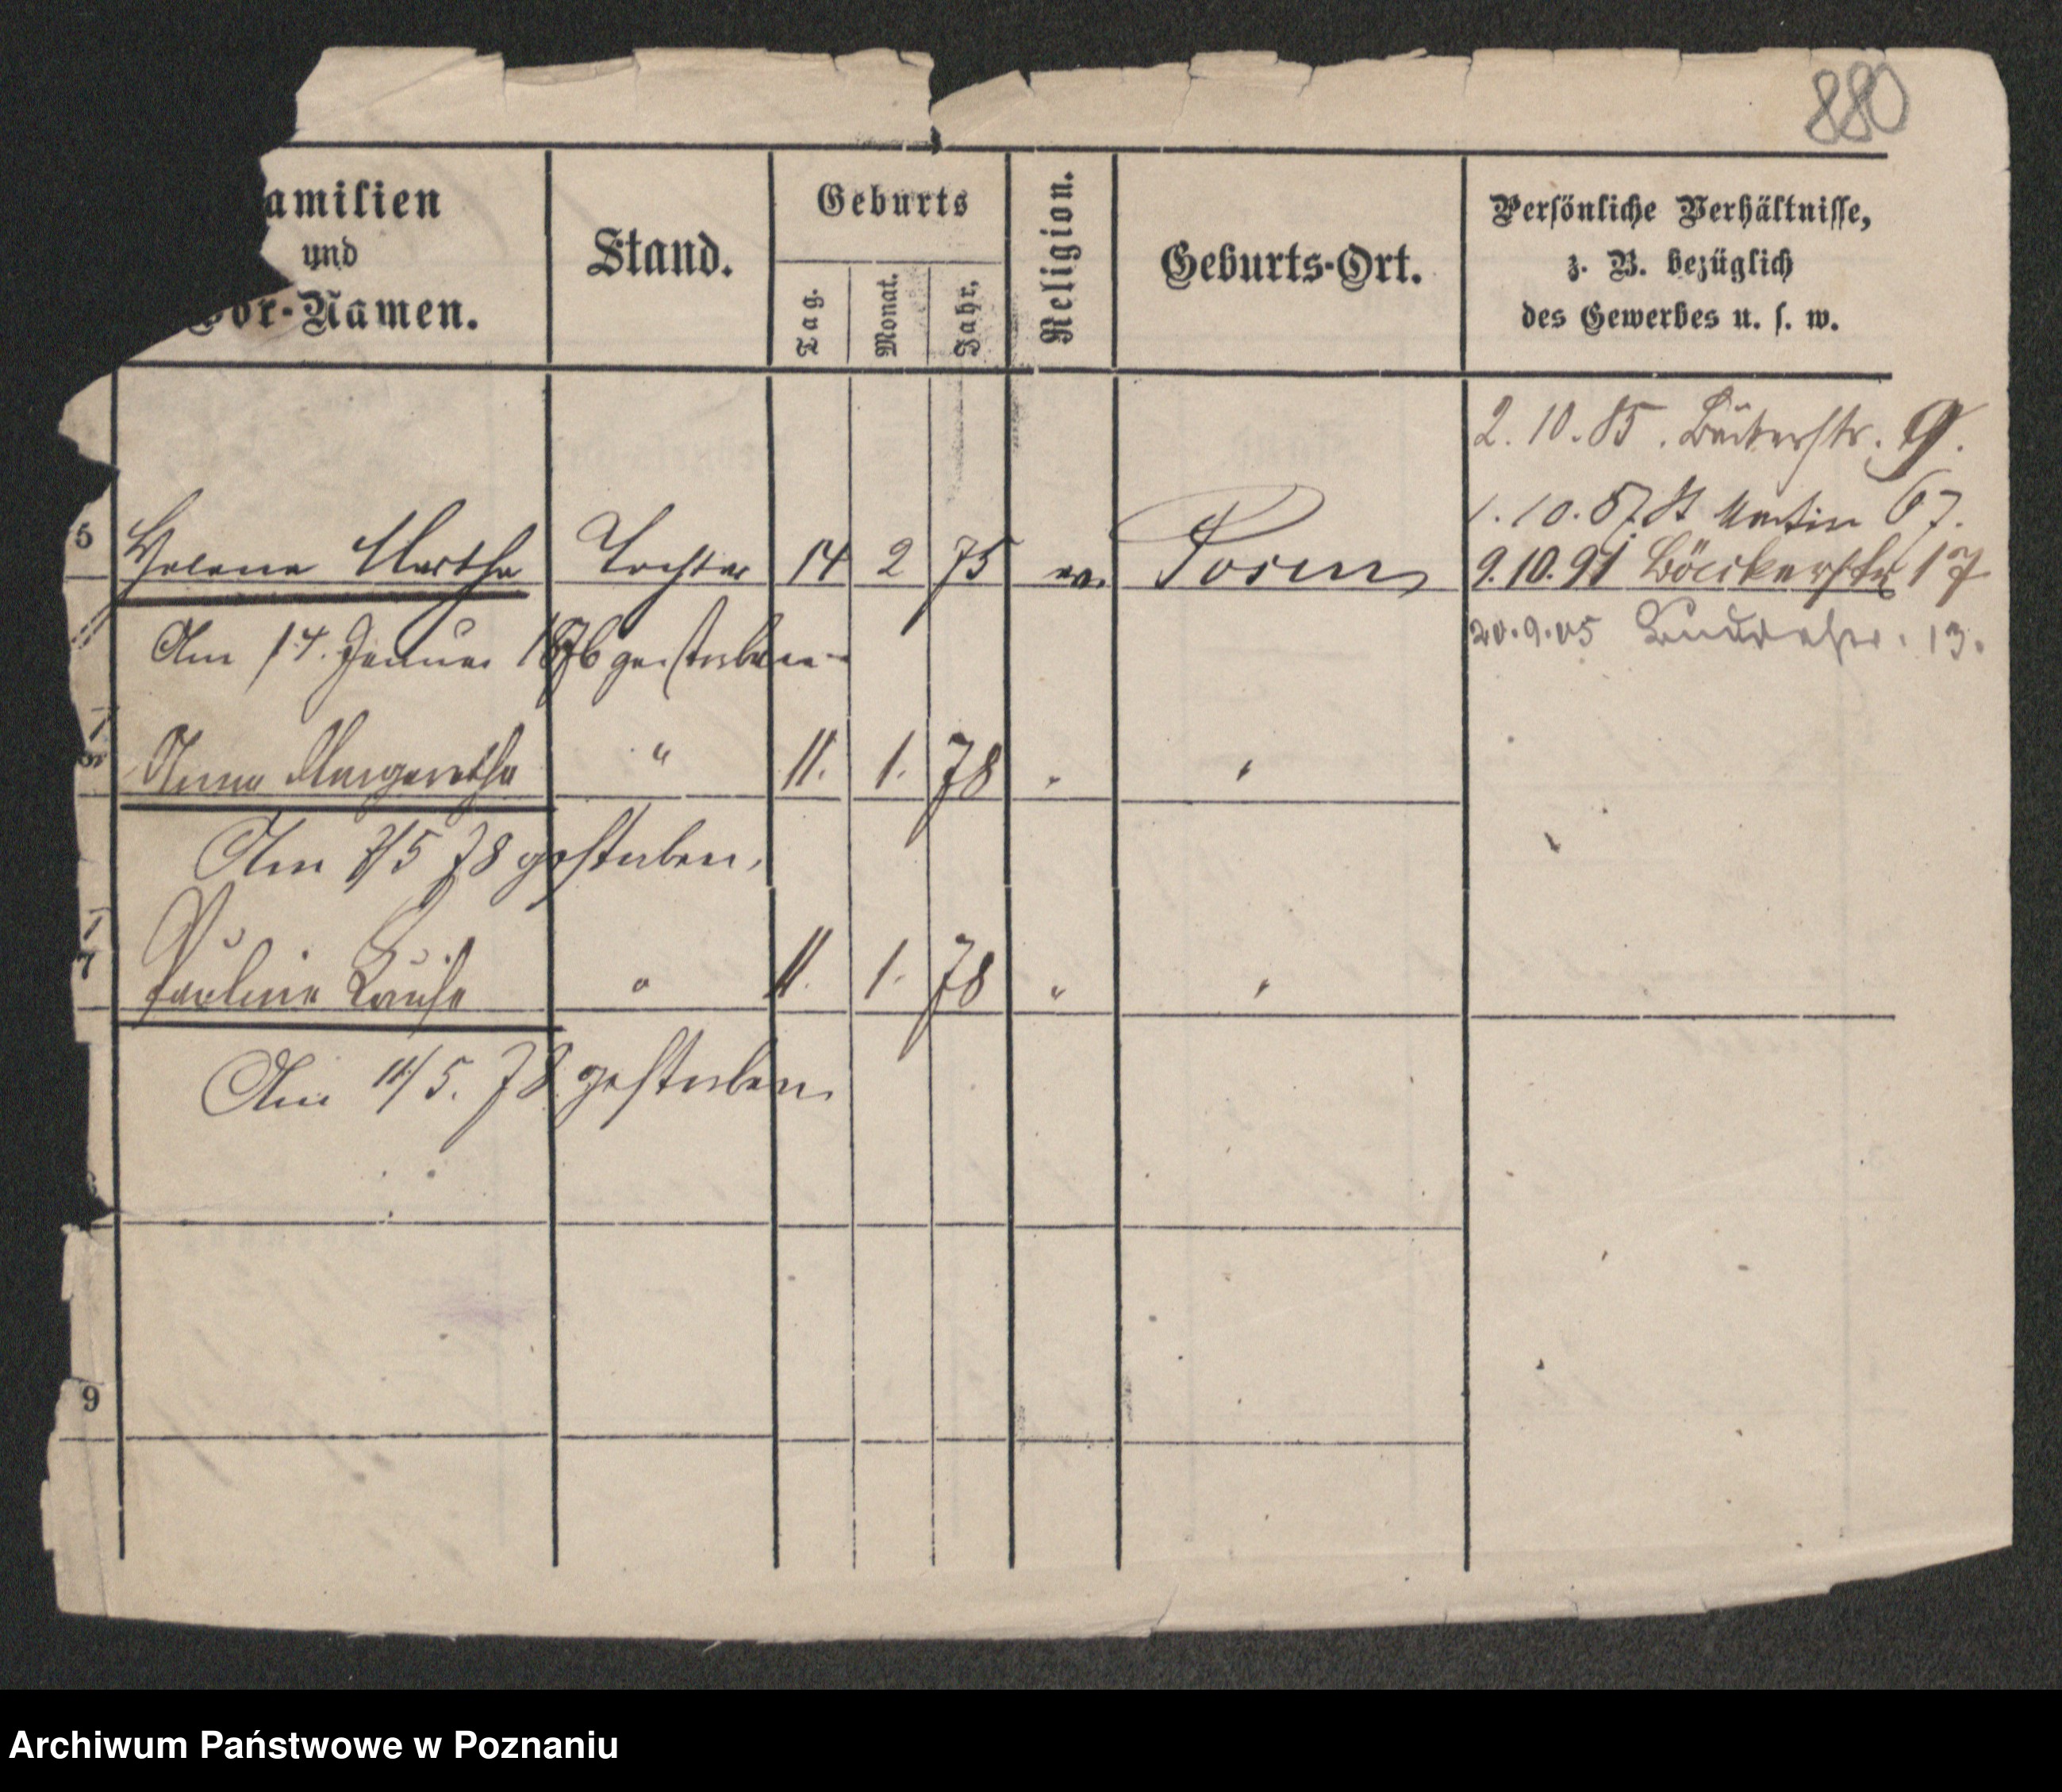 880
amilien
und
Vor-Namen.
Stand.
Geburts
Tag.
Monat.
Jahr.
Religion.
Geburts-Ort.
Persönliche Verhältnisse,
z. B. bezüglich
des Gewerbes u. s. w.
2. 10. 85. Bäckerstr. 9.
1. 10. 87. St Martin 67.
5 Helene Martha Tochter 14 2 75 ev. Posen 9. 10. 91 Bäckerstr 17
Am 14. Januar 1876 gestorben
20. 9. 05 13.
Anna Margarethe " 11. 1. 78 " "
Am 7/5 78 gestorben.
7 Pauline Louise " 11. 1. 78 " "
Am 11/5. 78 gestorben.
9
Archiwum Państwowe w Poznaniu